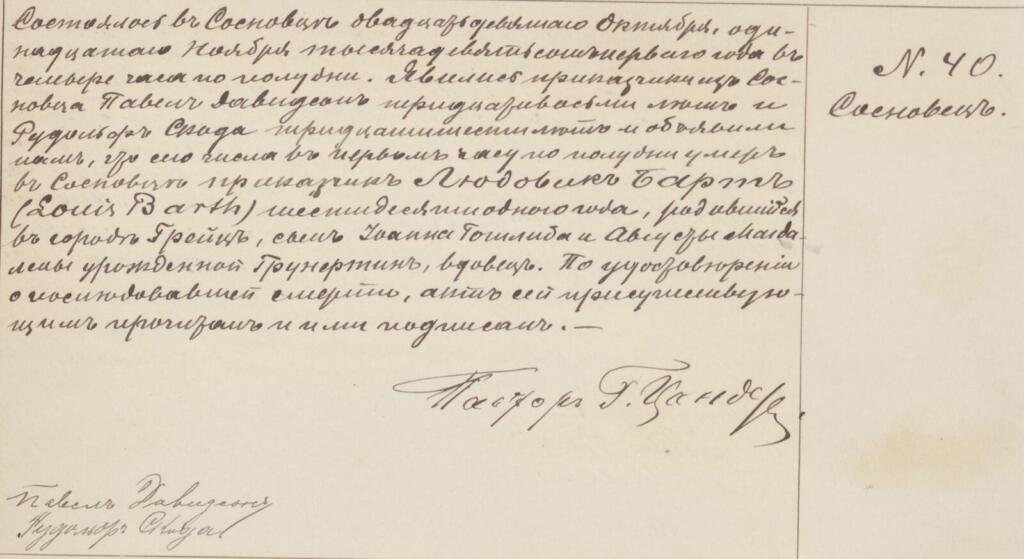 Состоялось въ Сосновцѣ двадцать девятаго Октября, оди-
надцатаго Ноября тысяча девятьсотъ перваго года въ
четыре часа по полудни. Явились приказчики изъ Сос-
новца Павелъ Давидсонъ тридцати восьми лѣтъ и
Рудольфъ Скода тридцати шести лѣтъ и объявили
намъ, что сего числа въ первомъ часу по полудни умеръ
въ Сосновцѣ приказчикъ Людовикъ Бартъ
(Louis Barth) шестидесяти одного года, родившійся
въ городѣ Грейцъ, сынъ Іоанна Готлиба и Августы Магда-
лены урожденной Грунертинъ, вдовецъ. По удостовѣреніи
о послѣдовавшей смерти, актъ сей присутствую-
щимъ прочитанъ и ими подписанъ. —
Пасторъ Г. Цандеръ
Павелъ Давидсонъ
Рудольфъ Скода
N. 40.
Сосновецъ.